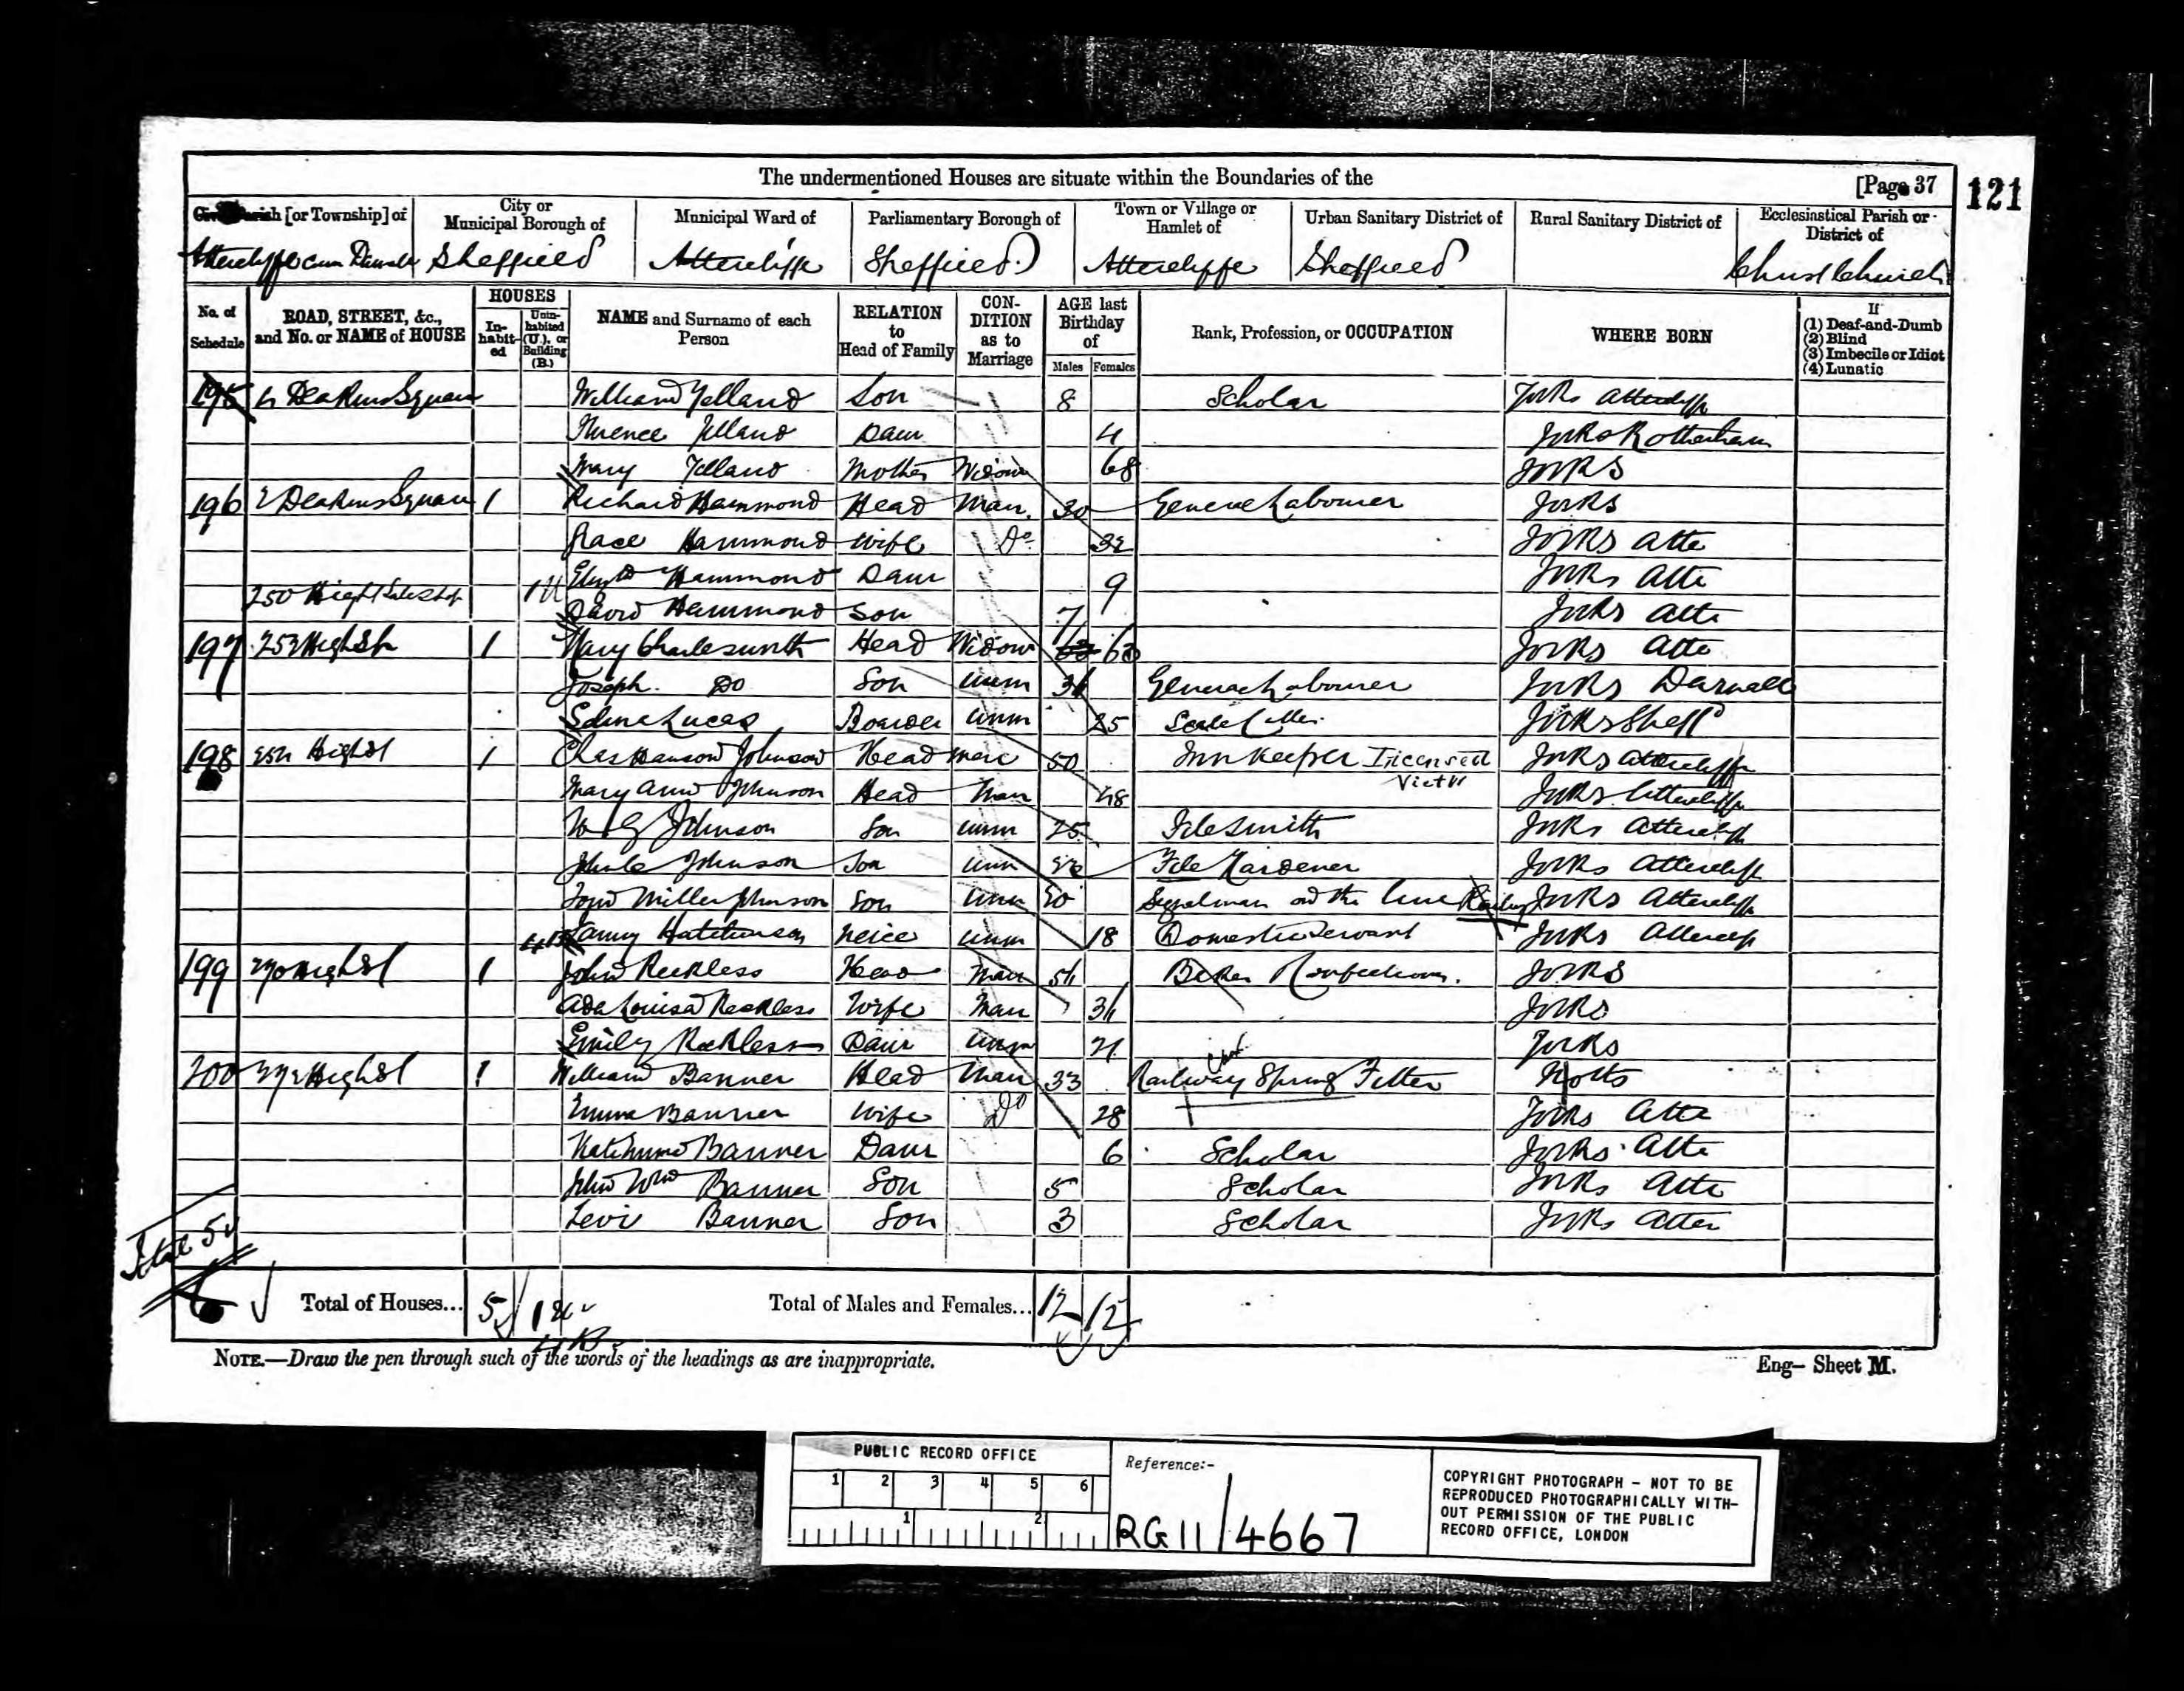 The undermentioned Houses are situate within the Boundaries of the
[Page 37
121
Parish [or Township] of
City or Municipal Borough of
Municipal Ward of
Parliamentary Borough of
Town or Village or Hamlet of
Urban Sanitary District of
Rural Sanitary District of
Ecclesiastical Parish or District of
Attercliffe cum Sheffield Attercliffe Sheffield Attercliffe Sheffield Christ Church
No. of Schedule
ROAD, STREET, &c., and No. or NAME of HOUSE
HOUSES
In-habit-ed
Unin-habited (U.), or Building (B.)
NAME and Surname of each Person
RELATION to Head of Family
CON-DITION as to Marriage
AGE last Birthday of
Males Females
Rank, Profession, or OCCUPATION
WHERE BORN
If
(1) Deaf-and-Dumb
(2) Blind
(3) Imbecile or Idiot
(4) Lunatic
195 Deakins Square William Yelland Son 8 Scholar Yorks Attercliffe
Florence Yelland Daur 4 Yorks Rotherham
Mary Yelland Mother Widow 68 Yorks
196 2 Deakins Square 1 Richard Hammond Head Marr. 30 General Labourer Yorks
Grace Hammond Wife Do 32 Yorks Atte
Hammond Daur 9 Yorks Atte
250 High 1U David Hammond Son 7 Yorks Atte
197 252 High St 1 Mary Charlesworth Head Widow 63 Yorks Atte
Joseph Do Son Unm General Labourer Yorks Darnall
Lucas Boarder Unm 25 Yorks Sheffd
198 High St 1 Chas Johnson Head Marr 50 Inn Keeper Licensed Vict Yorks Attercliffe
Mary Ann Johnson Head Marr 48 Yorks Attercliffe
Johnson Son Unm 25 File Smith Yorks Attercliffe
Johnson Son Unm File Hardener Yorks Attercliffe
Miller Johnson Son Unm 20 Signalman on the Line Railway Yorks Attercliffe
4B Fanny Hutchinson Neice Unm 18 Domestic Servant Yorks Attercliffe
199 270 High St 1 John Reckless Head Marr Baker Confectioner. Yorks
Ada Louisa Reckless Wife Marr Yorks
Emily Reckless Daur Unm 21 Yorks
200 272 High St 1 William Banner Head Marr 33 Railway Spring Fitter Notts
Emma Banner Wife Do 28 Yorks Atte
Banner Daur 6 Scholar Yorks Atte
John Wm Banner Son 5 Scholar Yorks Atte
Levi Banner Son 3 Scholar Yorks Atter
Total
Total of Houses... 5 1U
4B
Total of Males and Females... 12 12
NOTE.—Draw the pen through such of the words of the headings as are inappropriate.
Eng— Sheet M.
PUBLIC RECORD OFFICE
1 2 3 4 5 6
1 2
Reference:-
RG 11 / 4667
COPYRIGHT PHOTOGRAPH – NOT TO BE
REPRODUCED PHOTOGRAPHICALLY WITH-
OUT PERMISSION OF THE PUBLIC
RECORD OFFICE, LONDON